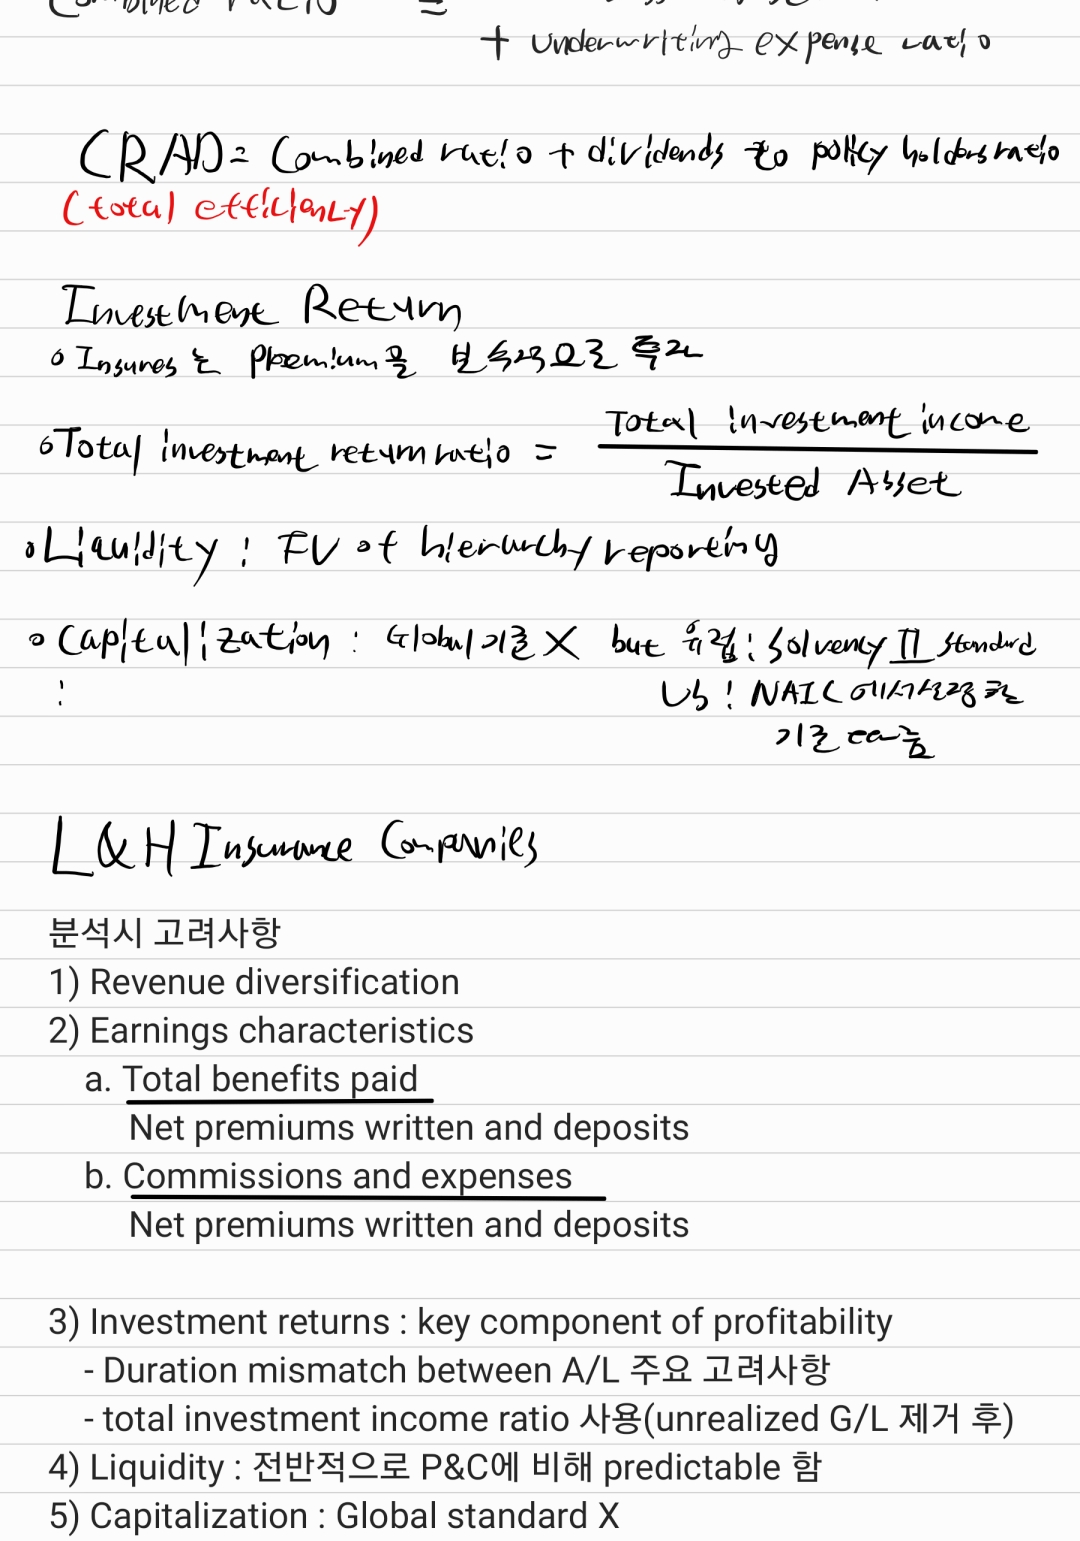 Combined ratio =
+ underwriting expense ratio
CRAD = Combined ratio + dividends to policy holders ratio
(total efficiency)
Investment Return
o Insures는 Premium을 보수적으로 투자
o Total investment return ratio = Total investment income
Invested Asset
o Liquidity : FV of hierarchy reporting
o Capitalization : Global 기준 X but 유럽 : Solvency II standard
: US : NAIC에서 사용하는
기준 따름
L&H Insurance Companies
분석시 고려사항
1) Revenue diversification
2) Earnings characteristics
a. Total benefits paid
Net premiums written and deposits
b. Commissions and expenses
Net premiums written and deposits
3) Investment returns : key component of profitability
- Duration mismatch between A/L 주요 고려사항
- total investment income ratio 사용(unrealized G/L 제거 후)
4) Liquidity : 전반적으로 P&C에 비해 predictable 함
5) Capitalization : Global standard X